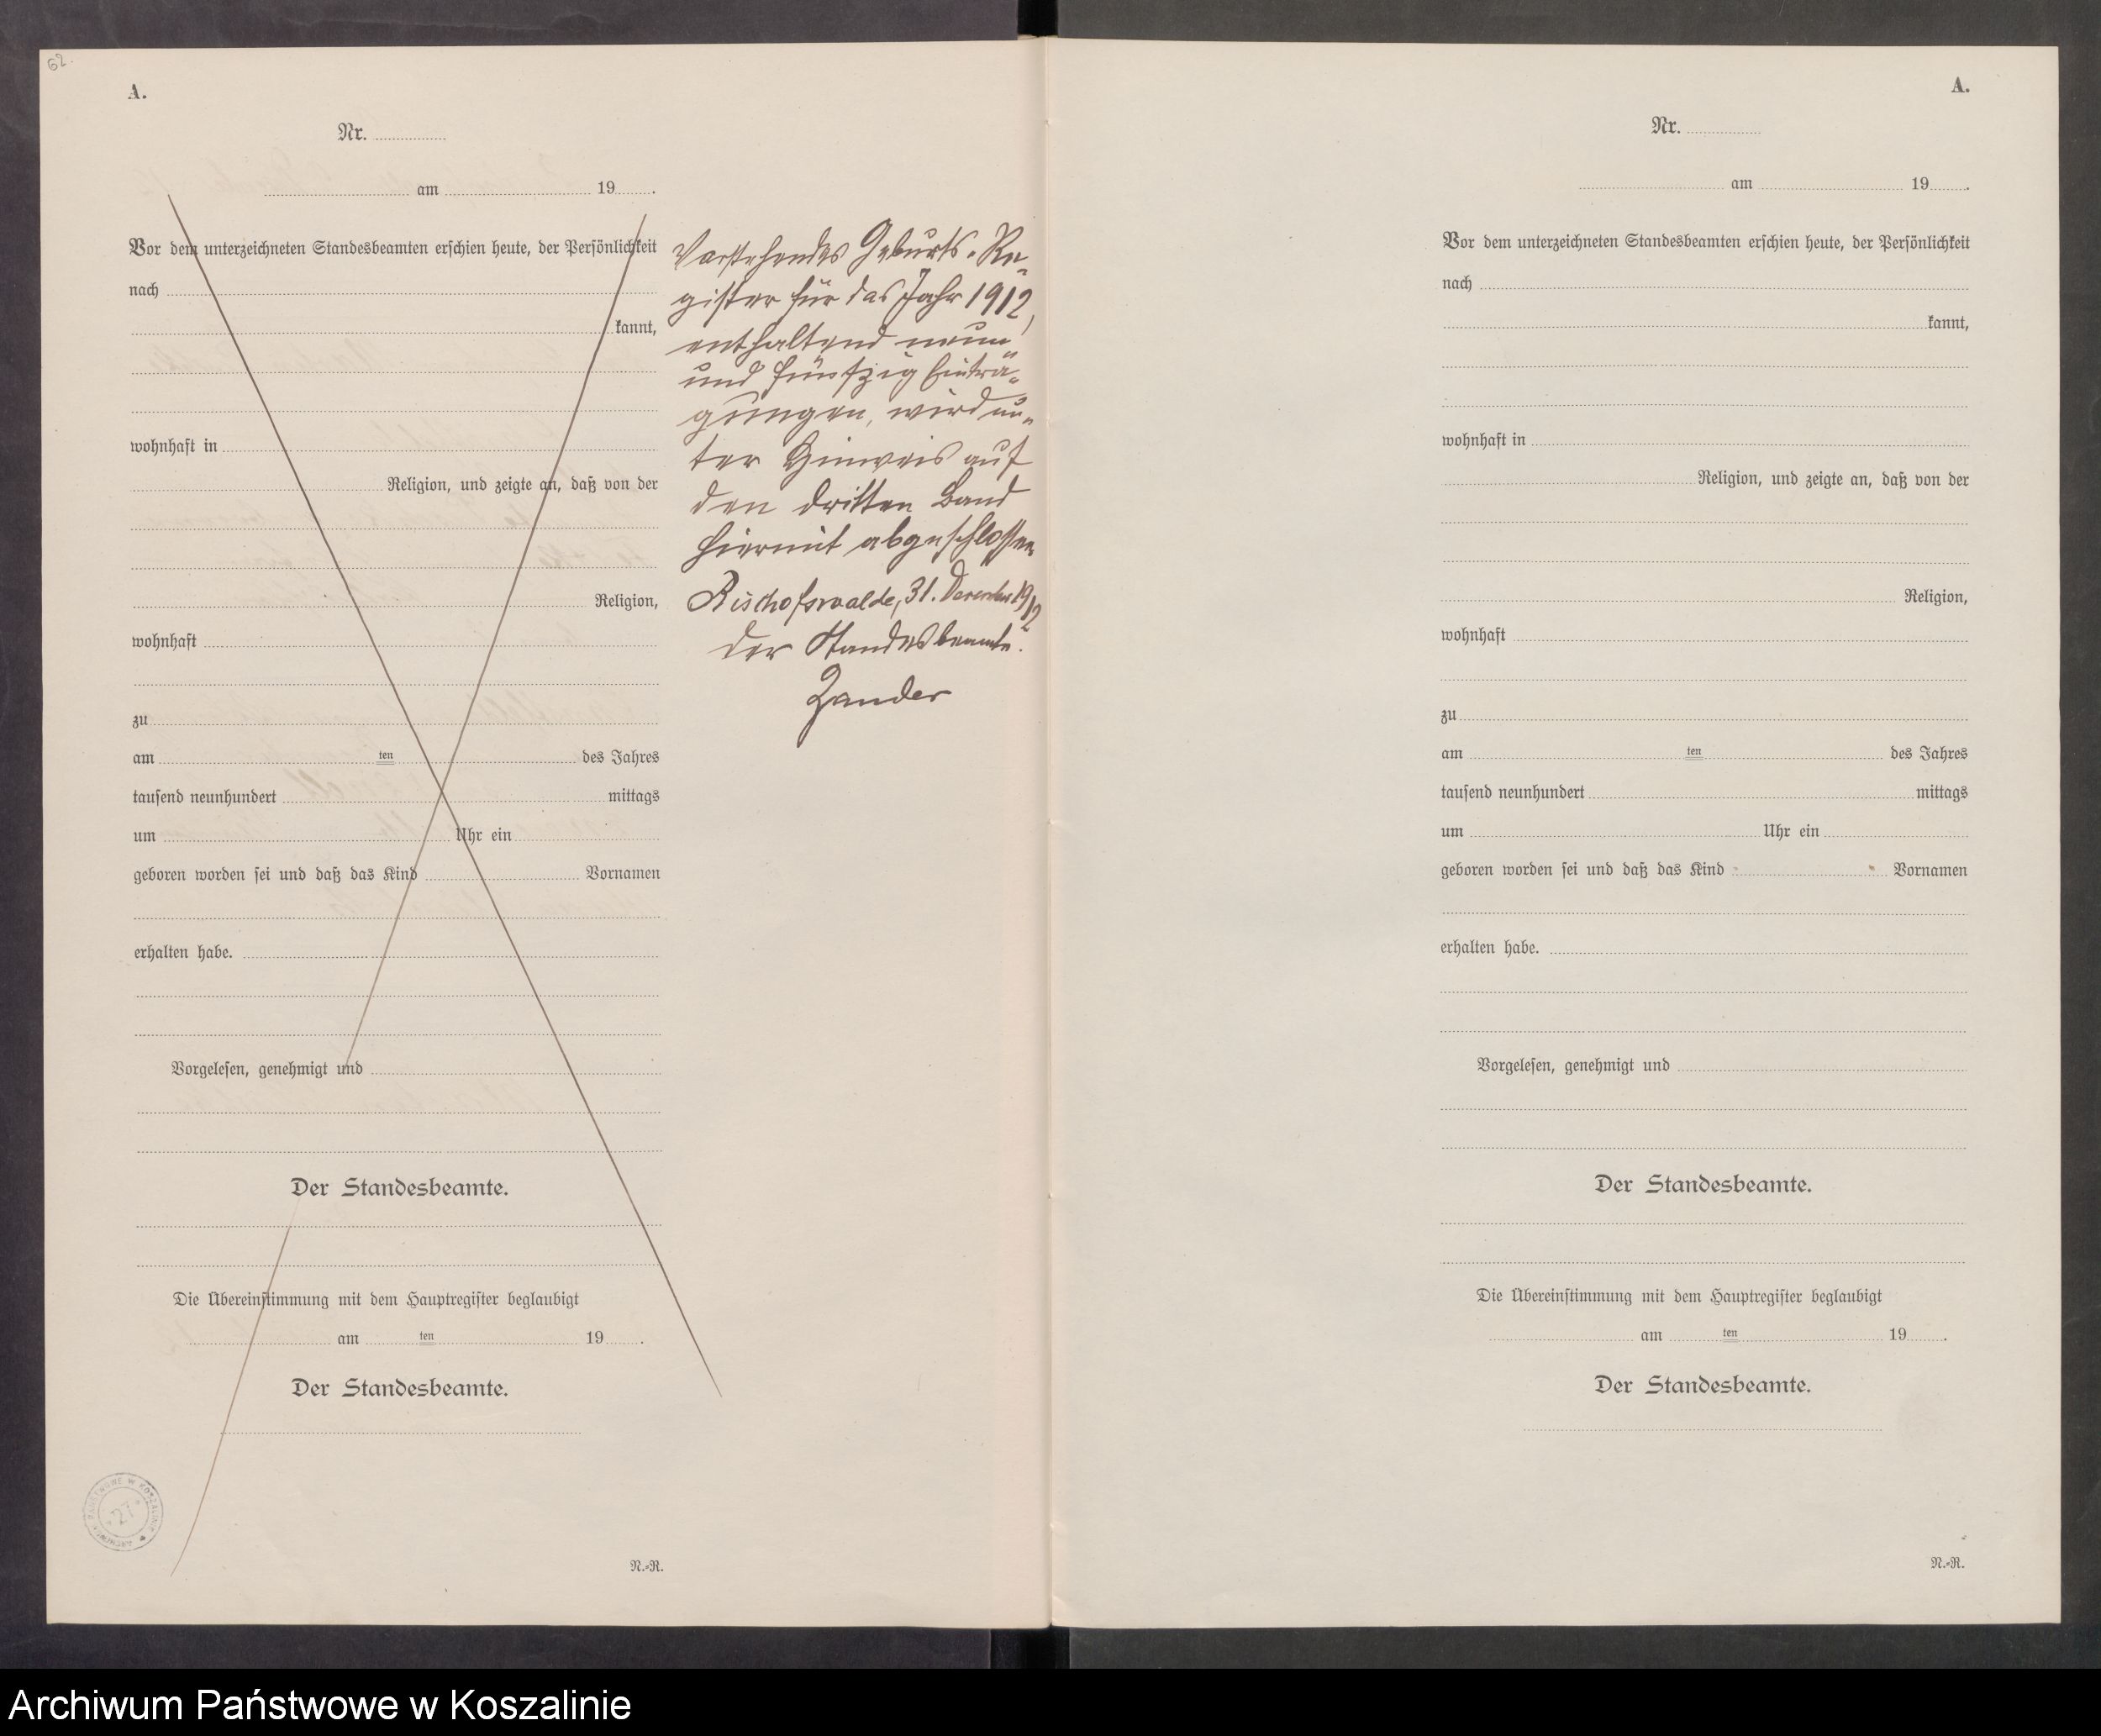 62.
A.
Nr.
am 19 .
Vor dem unterzeichneten Standesbeamten erschien heute, der Persönlichkeit
nach
kannt,
wohnhaft in
Religion, und zeigte an, daß von der
Religion,
wohnhaft
zu
am ten des Jahres
tausend neunhundert mittags
um Uhr ein
geboren worden sei und daß das Kind Vornamen
erhalten habe.
Vorgelesen, genehmigt und
Der Standesbeamte.
Die Übereinstimmung mit dem Hauptregister beglaubigt
am ten 19 .
Der Standesbeamte.
ARCHIWUM PAŃSTWOWE W KOSZALINIE
27
N.-R.
Vorstehendes Geburts-Re-
gister für das Jahr 1912,
enthaltend neun
und fünfzig Eintra-
gungen, wird un-
ter Hinweis auf
den dritten Band
hiermit abgeschlossen
Bischofswalde, 31. Dezember 1912
Der Standesbeamte.
Zander
A.
Nr.
am 19 .
Vor dem unterzeichneten Standesbeamten erschien heute, der Persönlichkeit
nach
kannt,
wohnhaft in
Religion, und zeigte an, daß von der
Religion,
wohnhaft
zu
am ten des Jahres
tausend neunhundert mittags
um Uhr ein
geboren worden sei und daß das Kind Vornamen
erhalten habe.
Vorgelesen, genehmigt und
Der Standesbeamte.
Die Übereinstimmung mit dem Hauptregister beglaubigt
am ten 19 .
Der Standesbeamte.
N.-R.
Archiwum Państwowe w Koszalinie